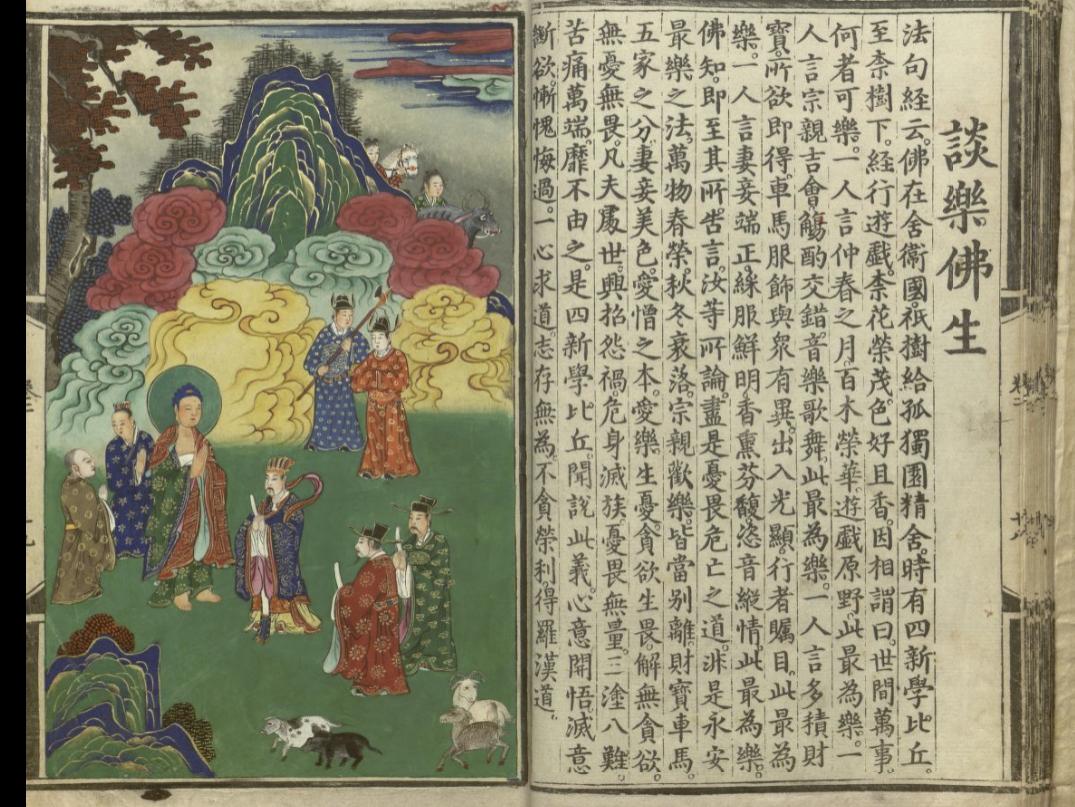 談樂佛生
法句経云。佛在舍衞國。祇樹給孤獨園精舍。時有四新學比丘。
至柰樹下。経行遊戲。柰花榮茂。色好且香。因相謂曰。世間萬事。
何者可樂。一人言仲春之月。百木榮華。遊戲原野。此最為樂。一
人言宗親吉會。觴酌交錯。音樂歌舞。此最為樂。一人言多積財
寶。所欲即得。車馬服飾與眾有異。出入光顯。行者矚目。此最為
樂。一人言妻妾端正。綵服鮮明。香熏芬馥。恣音縱情。此最為樂。
佛知。即至其所。告言。汝等所論。盡是憂畏危亡之道。非是永安
最樂之法。萬物春榮。秋冬衰落。宗親歡樂。皆當別離。財寶車馬。
五家之分。妻妾美色。愛憎之本。愛樂生憂。貪欲生畏。解無貪欲。
無憂無畏。凡夫處世。興招怨禍。危身滅族。憂畏無量。三塗八難。
苦痛萬端。靡不由之。是四新學比丘。聞說此義。心意開悟。滅意
斷欲。慚愧悔過。一心求道。志存無為。不貪榮利。得羅漢道。